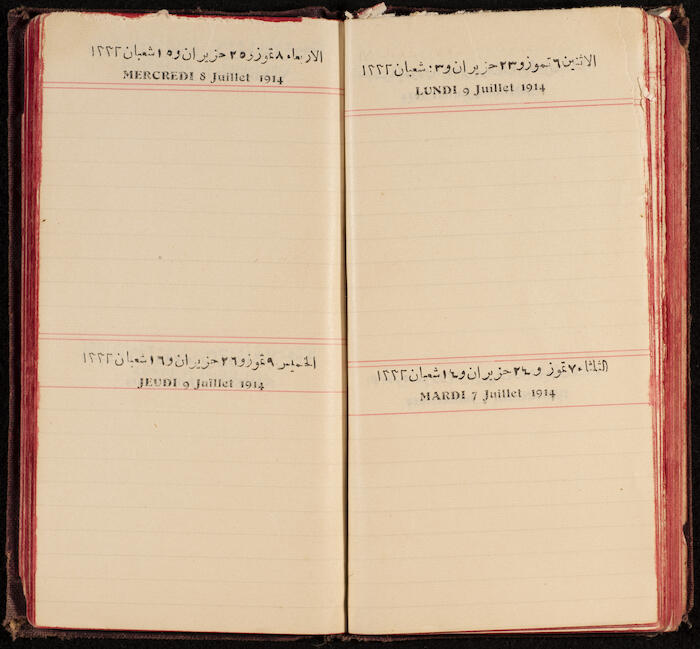 الاثنين ٦ تموز و٢٣ حزيران و١٣ شعبان ١٣٣٢
LUNDI 9 Juillet 1914
الثلثاء ٧ تموز و ٢٤ حزيران و١٤ شعبان ١٣٣٢
MARDI 7 Juillet 1914
الاربعاء ٨ تموز و٢٥ حزيران و١٥ شعبان ١٣٣٢
MERCREDI 8 Juillet 1914
الخميس ٩ تموز و٢٦ حزيران و١٦ شعبان ١٣٣٢
JEUDI 9 Juillet 1914